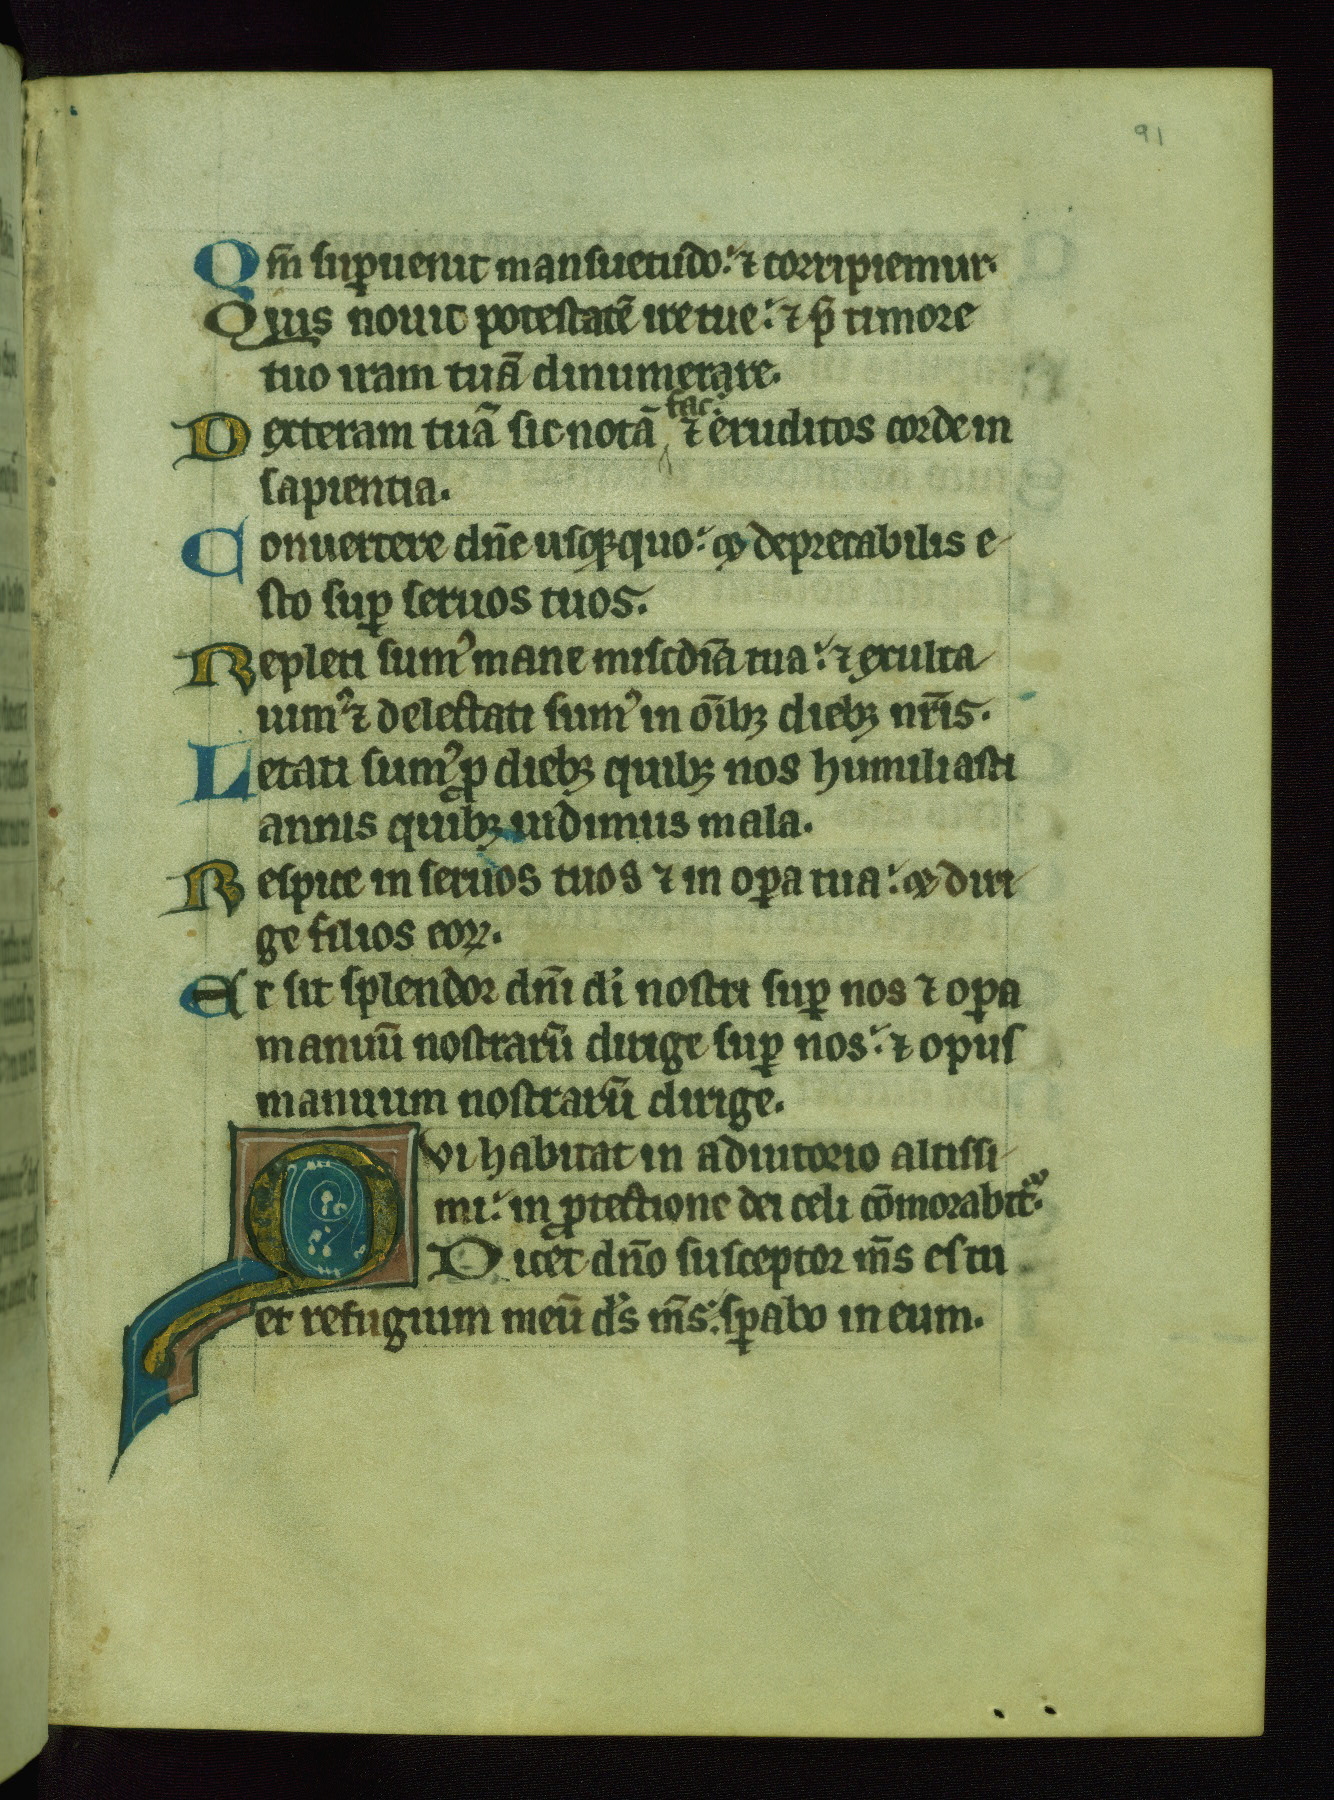 91
Qm̄ suꝑuenit mansuetudo: ⁊ corripiemur.
Quis nouit potestatē ire tue: ⁊ p̄ timore
tuo iram tuā dinumerare.
fac:
Dexteram tuā sic notā ⁊ eruditos corde in
sapientia.
Conuertere dn̄e usqꝫquo: ⁊ deprecabilis e
sto suꝑ seruos tuos.
Repleti sumꝰ mane misc̄dia tua: ⁊ exulta
uimꝰ ⁊ delectati sumꝰ in oīibꝫ diebꝫ nr̄is.
Letati sumꝰ ꝓ diebꝫ quibꝫ nos humiliasti
annis quibꝫ uidimus mala.
Respice in seruos tuos ⁊ in oꝑa tua: ⁊ diri
ge filios eoꝝ.
Et sit splendor dn̄i di nostri suꝑ nos ⁊ oꝑa
manuū nostrarū dirige suꝑ nos: ⁊ opus
manuum nostrarū dirige.
Qvi habitat in adiutorio altissi
mi: in ꝓtectione dei celi cōmorabit᷑.
Dicet dn̄o susceptor m̄s es tu
et refugium meū ds̄ m̄s: sꝑabo in eum.